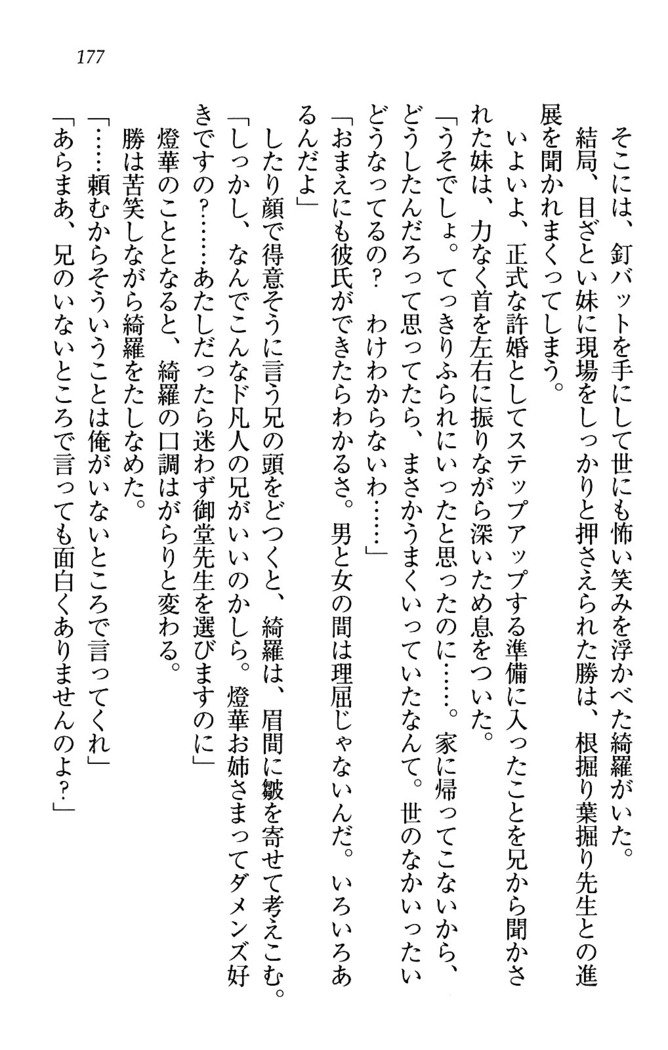 177
そこには、釘バットを手にして世にも怖い笑みを浮かべた綺羅がいた。
結局、目ざとい妹に現場をしっかりと押さえられた勝は、根掘り葉掘り先生との進
展を聞かれまくってしまう。
いよいよ、正式な許婚としてステップアップする準備に入ったことを兄から聞かさ
れた妹は、力なく首を左右に振りながら深いため息をついた。
「うそでしょ。てっきりふられにいったと思ったのに……。家に帰ってこないから、
どうしたんだろって思ってたら、まさかうまくいっていたなんて。世のなかいったい
どうなってるの？　わけわからないわ……」
「おまえにも彼氏ができたらわかるさ。男と女の間は理屈じゃないんだ。いろいろあ
るんだよ」
したり顔で得意そうに言う兄の頭をどつくと、綺羅は、眉間に皺を寄せて考えこむ。
「しっかし、なんでこんなド凡人の兄がいいのかしら。燈華お姉さまってダメンズ好
きですの？……あたしだったら迷わず御堂先生を選びますのに」
燈華のこととなると、綺羅の口調はがらりと変わる。
勝は苦笑しながら綺羅をたしなめた。
「……頼むからそういうことは俺がいないところで言ってくれ」
「あらまあ、兄のいないところで言っても面白くありませんのよ？」